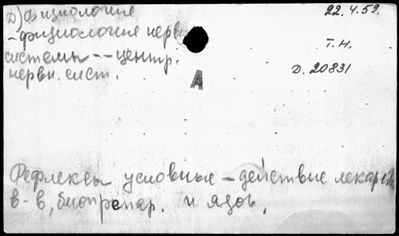 д) физиология 22.4.59.
- физиология нерв.
системы -- центр. Т.Н.
нервн. сист. Д. 20831
А
Рефлексы условные - действие лекарств.
в-в, биопрепар. и ядов,